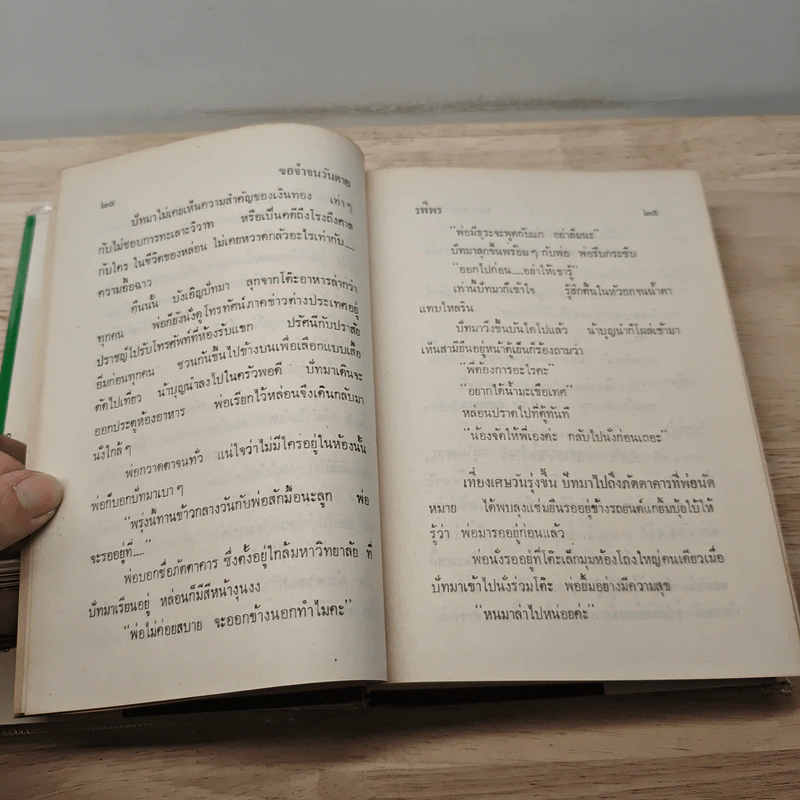 ๒๔ ขอจำจนวันตาย
ปัทมาไม่เคยเห็นความสำคัญของเงินทอง เท่าๆ
กับไม่ชอบการทะเลาะวิวาท หรือเป็นคดีถึงโรงถึงศาล
กับใคร ในชีวิตของหล่อน ไม่เคยหวาดกลัวอะไรเท่ากับ....
ความอื้อฉาว
คืนนั้น บังเอิญปัทมา ลุกจากโต๊ะอาหารล่ากว่า
ทุกคน พ่อก็ยังนั่งดูโทรทัศน์ภาคข่าวต่างประเทศอยู่
ปราชญ์ไปรับโทรศัพท์ที่ห้องรับแขก ปรัศนีกับปราลัย
อิ่มก่อนทุกคน ชวนกันขึ้นไปข้างบนเพื่อเลือกแบบเสื้อ
ตัดไปเที่ยว น้าบุญนำลงไปในครัวพอดี ปัทมาเดินจะ
ออกประตูห้องอาหาร พ่อเรียกไว้หล่อนจึงเดินกลับมา
นั่งใกล้ๆ
พ่อกวาดตาจนทั่ว แน่ใจว่าไม่มีใครอยู่ในห้องนั้น
พ่อก็บอกปัทมาเบาๆ
“พรุ่งนี้ทานข้าวกลางวันกับพ่อสักมื้อนะลูก พ่อ
จะรออยู่ที่....”
พ่อบอกชื่อภัตตาคาร ซึ่งตั้งอยู่ใกล้มหาวิทยาลัย ที่
ปัทมาเรียนอยู่ หล่อนก็มีสีหน้างุนงง
“พ่อไม่ค่อยสบาย จะออกข้างนอกทำไมคะ”
รพีพร ๒๕
“พ่อมีธุระจะพูดกับแก อย่าลืมนะ”
ปัทมาลุกขึ้นพร้อมๆ กับพ่อ พ่อรีบกระซิบ
“ออกไปก่อน....อย่าให้เขารู้”
เท่านี้ปัทมาก็เข้าใจ รู้สึกตื้นในหัวอกจนน้ำตา
แทบไหลริน
ปัทมาวิ่งขึ้นบันไดไปแล้ว น้าบุญนำก็โผล่เข้ามา
เห็นสามียืนอยู่หน้าตู้เย็นก็ร้องถามว่า
“พี่ต้องการอะไรคะ”
“อยากได้น้ำมะเขือเทศ”
หล่อนปราดไปที่ตู้ทันที
“น้องจัดให้พี่เองค่ะ กลับไปนั่งก่อนเถอะ”
เที่ยงเศษวันรุ่งขึ้น ปัทมาไปถึงภัตตาคารที่พ่อนัด
หมาย ได้พบลุงแช่มยืนรออยู่ข้างรถยนต์แกยิ้มบุ้ยใบ้ให้
รู้ว่า พ่อมารออยู่ก่อนแล้ว
พ่อนั่งรออยู่ที่โต๊ะเล็กมุมห้องโถงใหญ่คนเดียวเมื่อ
ปัทมาเข้าไปนั่งร่วมโต๊ะ พ่อยิ้มอย่างมีความสุข
“หนูมาล่าไปหน่อยค่ะ”